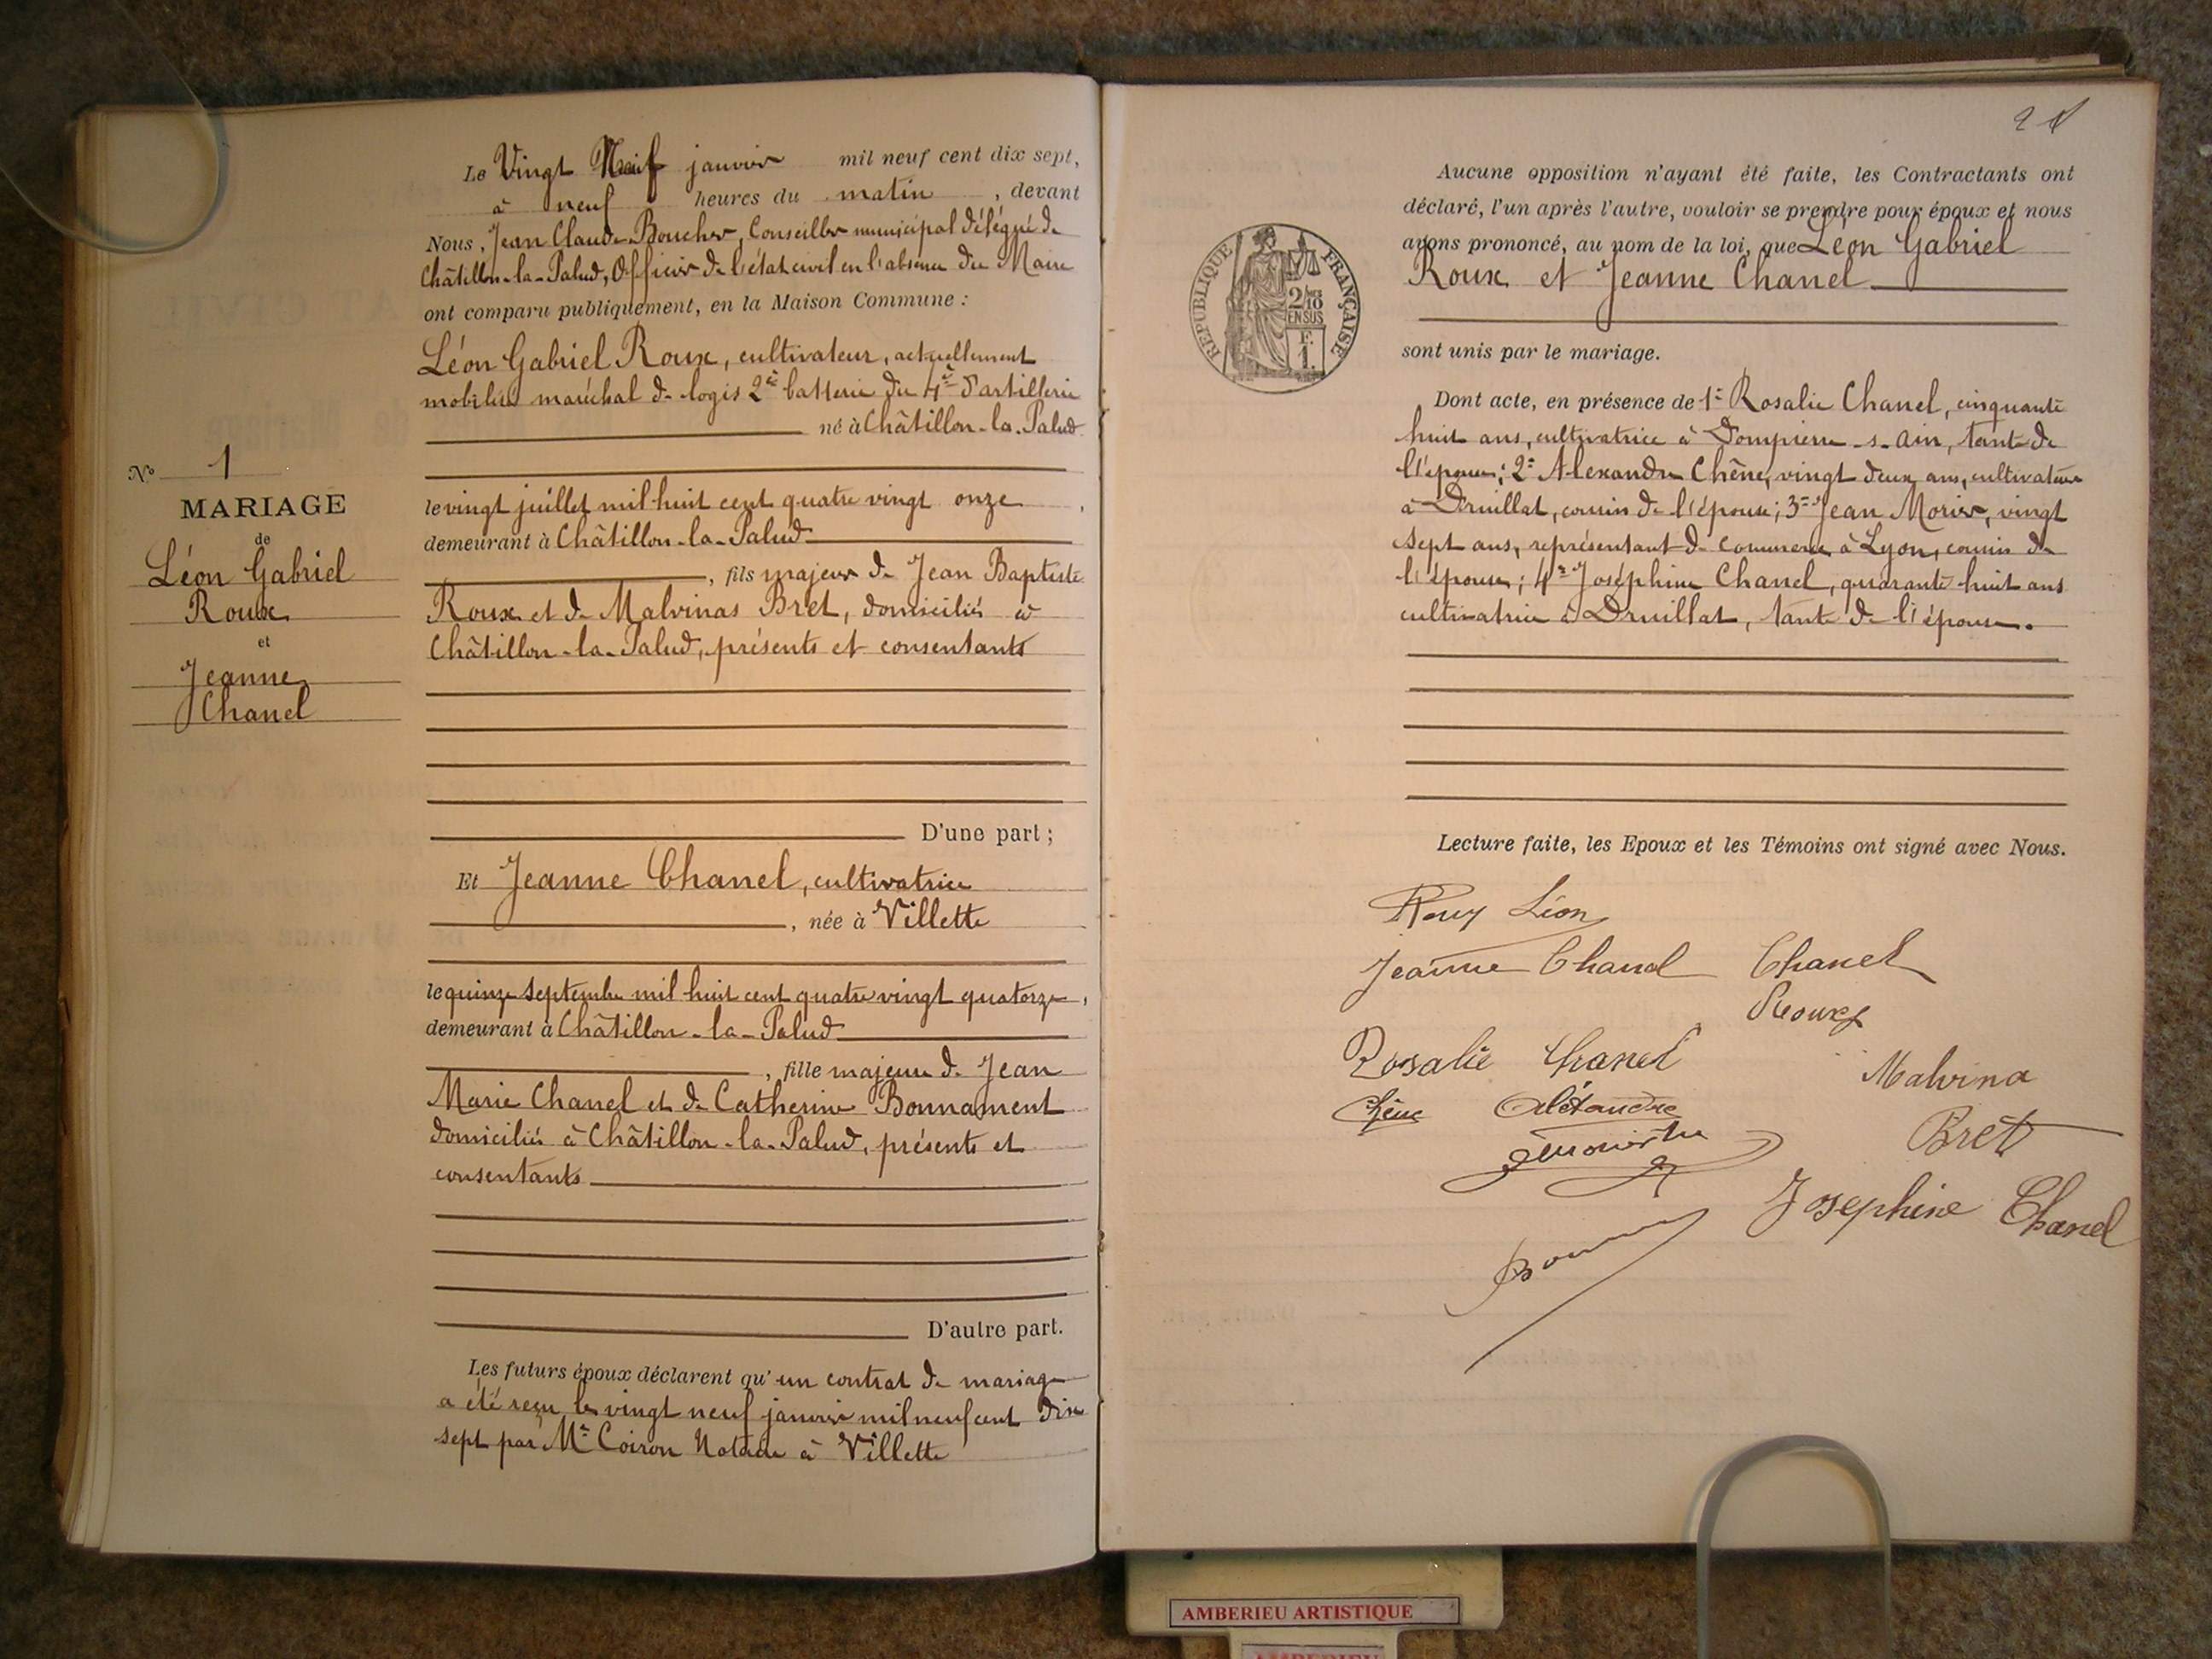 Le Vingt Neuf janvier mil neuf cent dix sept,
à neuf heures du matin, devant
Nous, Jean Claude Boucher, Conseiller municipal délégué de
Châtillon-la-Palud, Officier de l'état civil en l'absence du Maire
ont comparu publiquement, en la Maison Commune :
Léon Gabriel Roux, cultivateur, actuellement
mobilisé maréchal de logis 2e batterie du 4e d'artillerie
né à Châtillon-la-Palud
le vingt juillet mil huit cent quatre vingt onze,
demeurant à Châtillon-la-Palud
, fils majeur de Jean Baptiste
Roux et de Malvinas Bret, domiciliés à
Châtillon-la-Palud, présents et consentants
D'une part ;
Et Jeanne Chanel, cultivatrice
, née à Villette
le quinze septembre mil huit cent quatre vingt quatorze,
demeurant à Châtillon-la-Palud
, fille majeure de Jean
Marie Chanel et de Catherine Bonnament
domiciliés à Châtillon-la-Palud, présents et
consentants
D'autre part.
Les futurs époux déclarent qu'un contrat de mariage
a été reçu le vingt neuf janvier mil neuf cent dix
sept par Me Coiron Notaire à Villette
No 1
MARIAGE
de
Léon Gabriel
Roux
et
Jeanne
Chanel
Aucune opposition n'ayant été faite, les Contractants ont
déclaré, l'un après l'autre, vouloir se prendre pour époux et nous
avons prononcé, au nom de la loi, que Léon Gabriel
Roux et Jeanne Chanel
sont unis par le mariage.
Dont acte, en présence de 1e Rosalie Chanel, cinquante
huit ans, cultivatrice à Dompierre-s-Ain, tante de
l'épouse; 2e Alexandre Chêne, vingt deux ans, cultivateur
à Druillat, cousin de l'épouse; 3e Jean Morier, vingt
sept ans, représentant de commerce à Lyon, cousin de
l'épouse; 4e Joséphine Chanel, quarante huit ans
cultivatrice à Druillat, tante de l'épouse.
Lecture faite, les Epoux et les Témoins ont signé avec Nous.
Roux Léon
Jeanne Chanel Chanel
Roux
Rosalie Chanel
Malvina
Chêne Alexandre
Bret
Josephine Chanel
REPUBLIQUE FRANÇAISE
2/10
EN SUS
F.
1.
AMBERIEU ARTISTIQUE
AMBERIEU